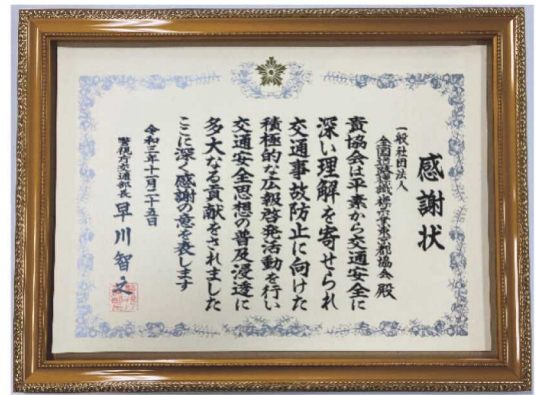 感謝状
一般社団法人
全国道路標識標示業東京都協会 殿
貴協会は平素から交通安全に
深い理解を寄せられ
交通事故防止に向けた
積極的な広報啓発活動を行い
交通安全思想の普及浸透に
多大なる貢献をされました
ここに深く感謝の意を表します
令和三年十一月二十五日
警視庁交通部長 早川智之